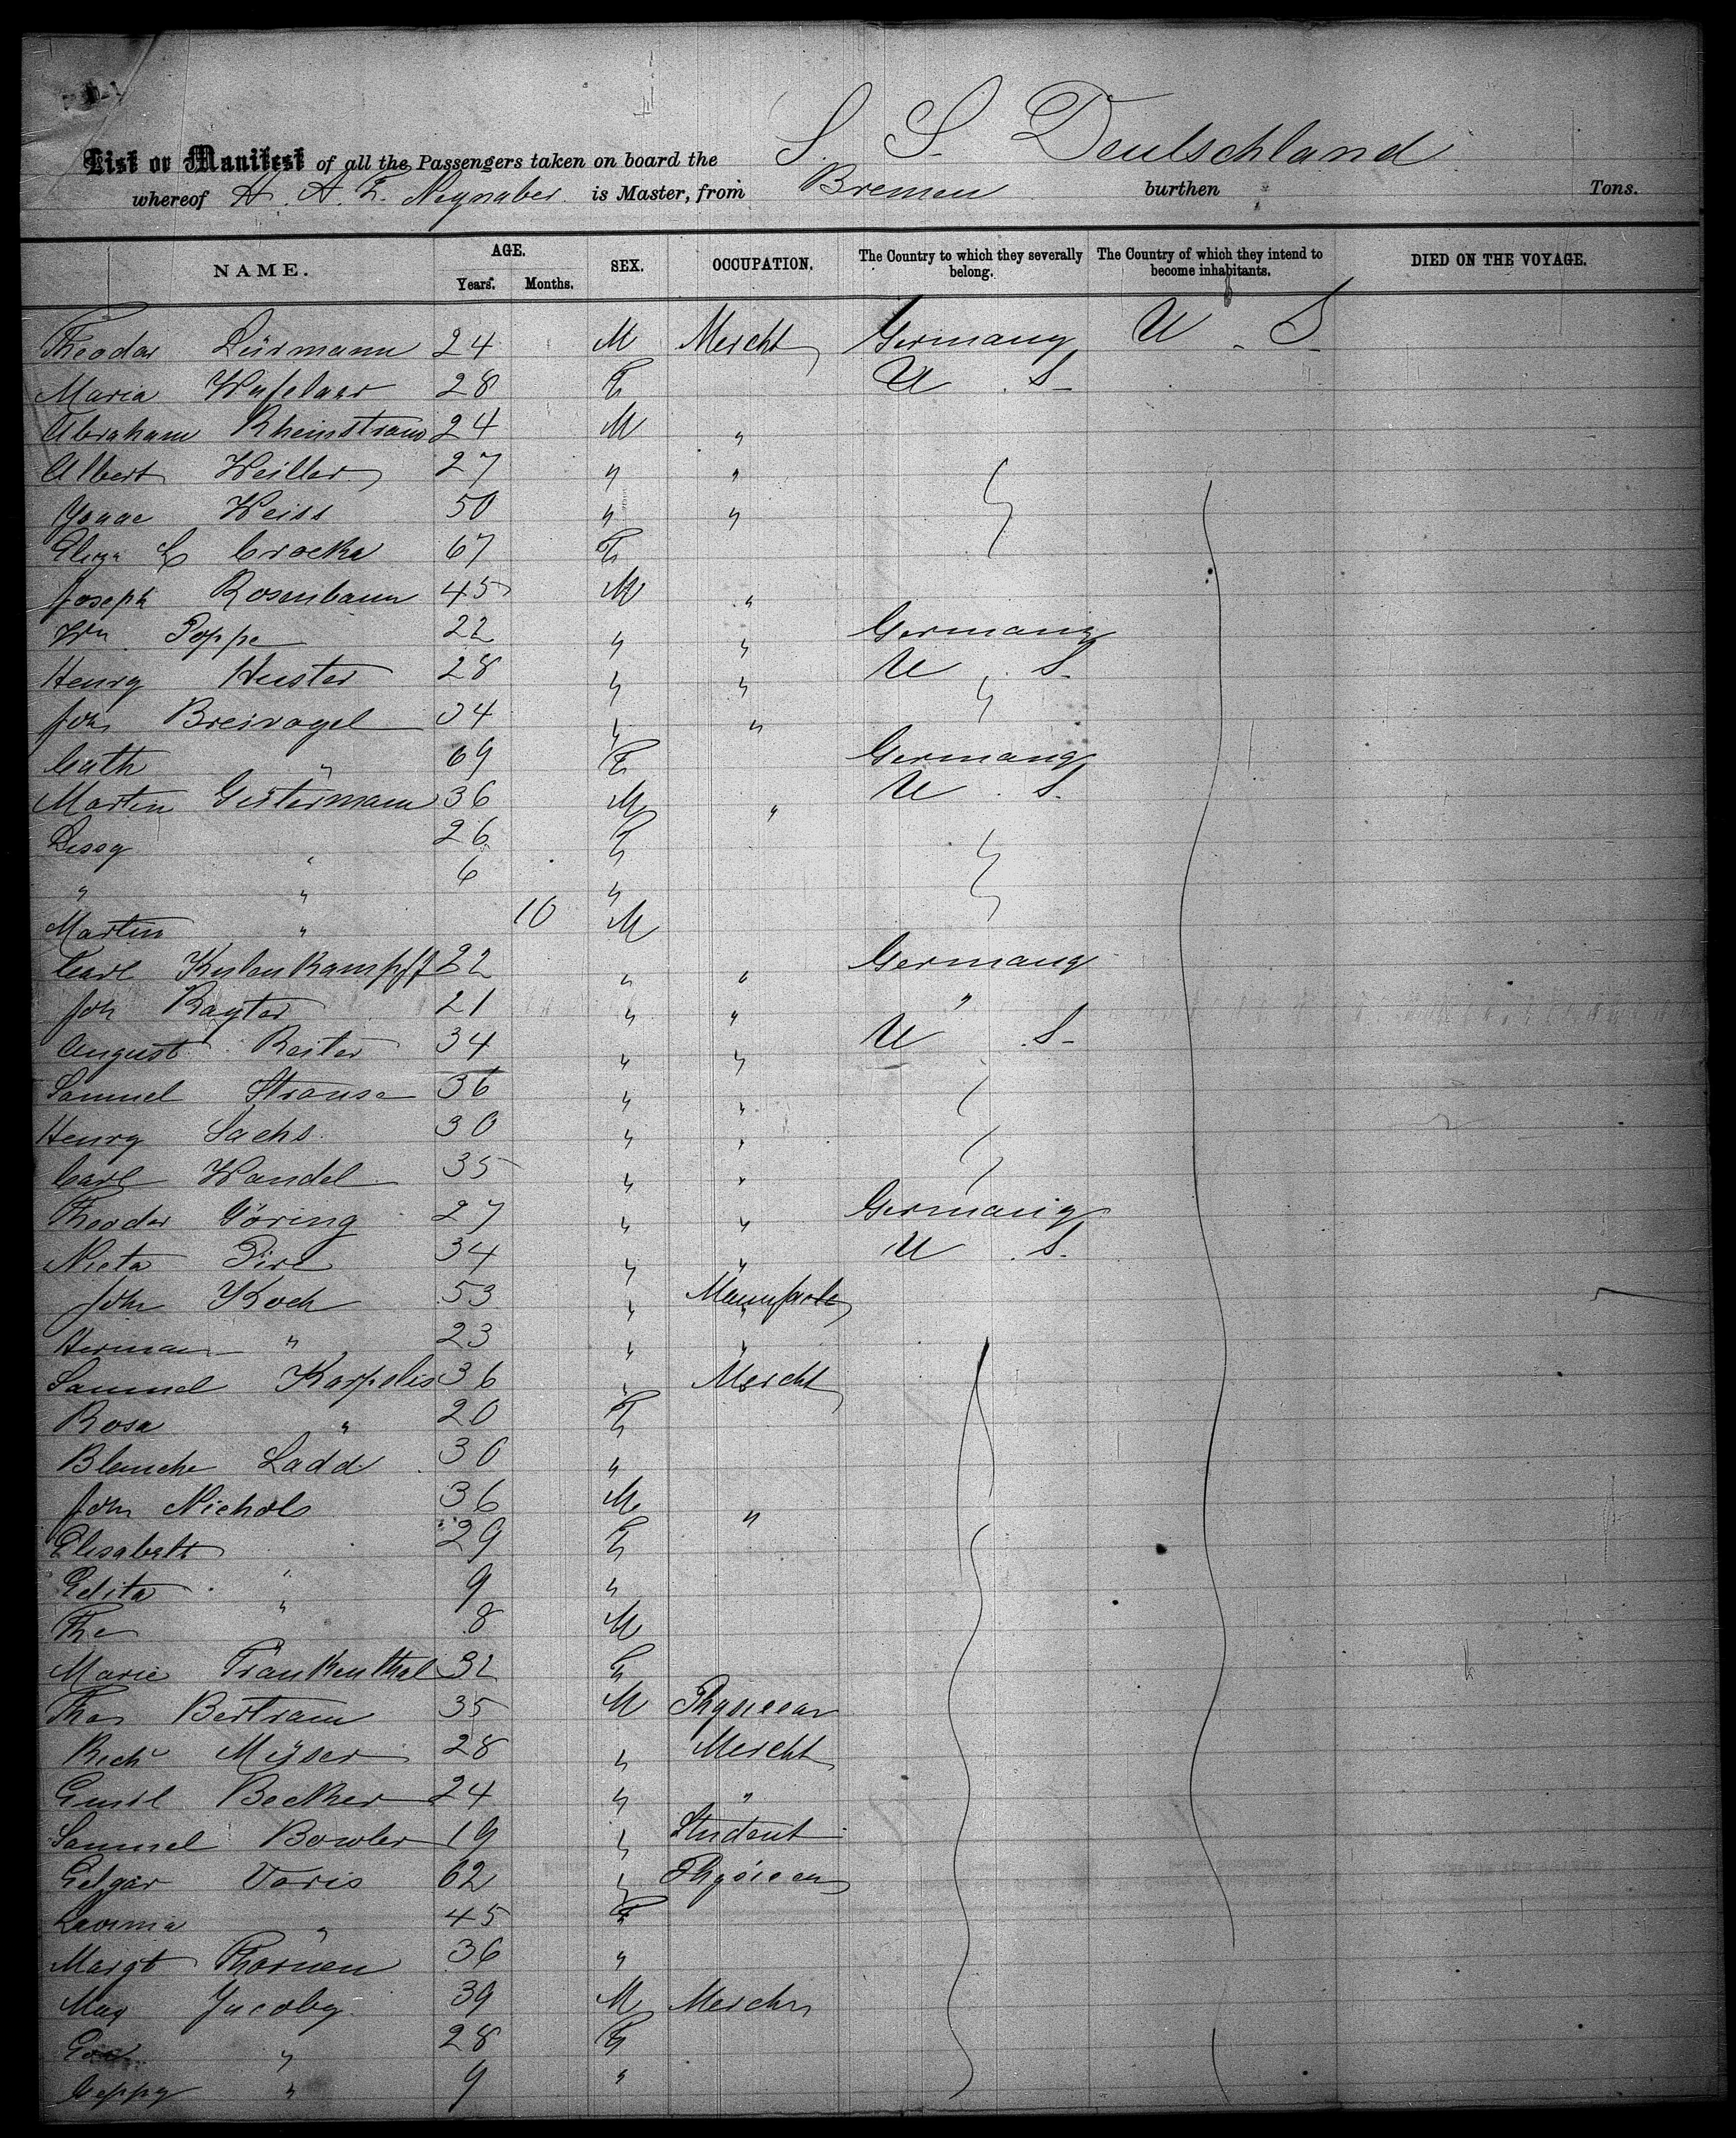 S. S. Deutschland
List or Manifest of all the Passengers taken on board the
whereof H. A. F. Neynaber is Master, from Bremen burthen Tons.
NAME. AGE. Years. Months. SEX. OCCUPATION. The Country to which they severally belong. The Country of which they intend to become inhabitants. DIED ON THE VOYAGE.
Theodor Lürmann 24 M Mercht Germany U. S.
Maria 28 F U. S.
Abraham Rheinstrom 24 M "
Albert Weiller 27 " "
Isaac Weiss 50 " "
Eliza L Crocker 67 F
Joseph Rosenbaum 45 M "
Wm Poppe 22 " " Germany
Henry Huster 28 " " U. S.
Joh Breivogel 34 " "
Cath " 69 F Germany
Martin Gestermann 36 M " U. S.
Lissy " 26 F
" " 6 "
Martin " 10 M
Carl Kulenkampff 22 " " Germany
Joh Bayter 21 " " "
August Reiter 34 " " U. S.
Samuel Strauss 36 " "
Henry Sachs 30 " "
Carl Wandel 35 " "
Theodor Göring 27 " " Germany
34 " " U. S.
John Koch 53 "
Herman " 23 " "
Samuel Karpeles 36 " Mercht
Rosa " 20 F
Blanche Ladd 30 "
John Nichols 36 M "
Elisabeth " 29 F
Edita " 9 "
The 8 M
Marie Frankenthal 32 F
Theo Bertram 35 M Physician
Richd Myser 28 " Mercht
Emil Becker 24 " "
Samuel Bowler 19 " Student
Edgar Voris 62 " Physician
Lavinia " 45 F
Margt Thornen 36 "
Max Jacoby 39 M Mercht
" 28 F
Ceppy " 9 "